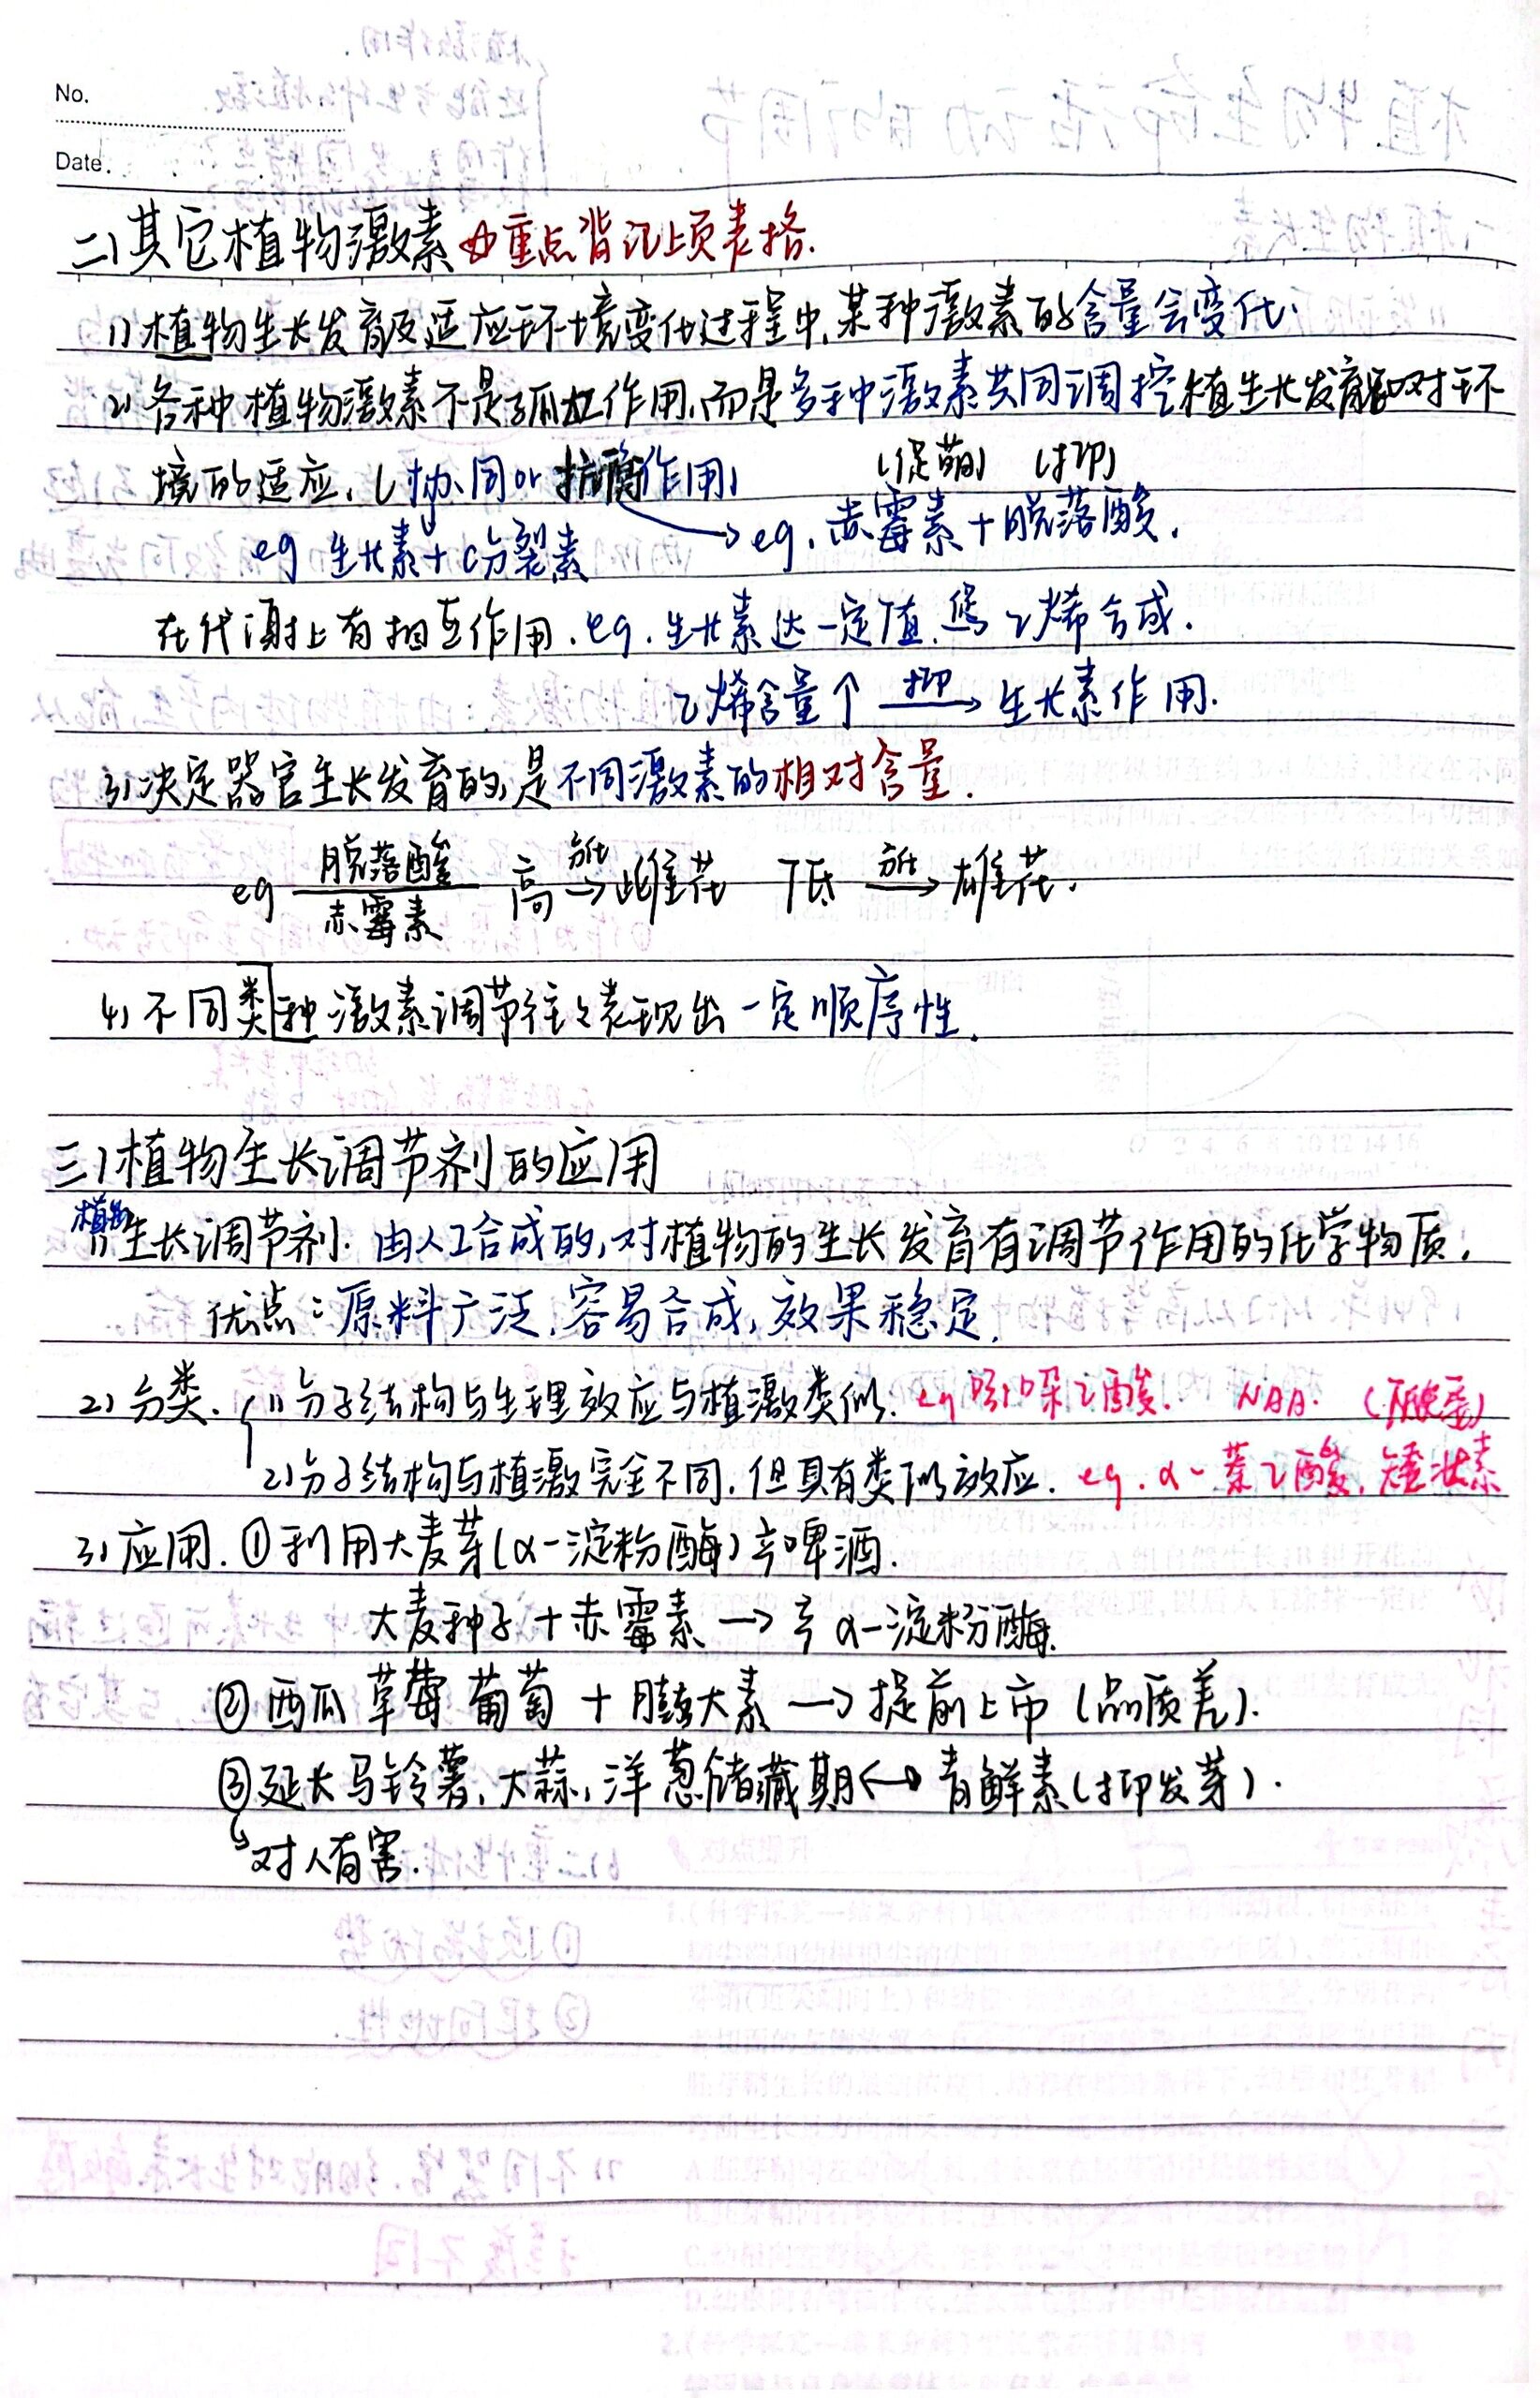 No.
Date.
二、其它植物激素 重点背记上页表格.
1) 植物生长发育及适应环境变化过程中,某种激素的含量会变化.
2) 各种植物激素不是孤立作用,而是多种中激素共同调控植生长发育和对环
境的适应.(协同or抗衡作用)
(促萌) (抑)
eg 生长素+c分裂素 → eg. 赤霉素+脱落酸.
在代谢上有相互作用.eg.生长素达一定值,促乙烯合成.
乙烯含量个 抑→ 生长素作用.
3) 决定器官生长发育的,是不同激素的相对含量.
eg 脱落酸/赤霉素 高 →雌花 低 → 雄花.
4) 不同类种激素调节往往表现出一定顺序性.
三、植物生长调节剂的应用
植物
1) 生长调节剂:由人工合成的,对植物的生长发育有调节作用的化学物质.
优点:原料广泛,容易合成,效果稳定.
2) 分类.{ 1) 分子结构与生理效应与植激类似. eg 吲哚乙酸. NAA.
2) 分子结构与植激完全不同,但具有类似效应. eg. α-萘乙酸,矮壮素
3) 应用.①利用大麦芽(α-淀粉酶)产啤酒.
大麦种子+赤霉素→产α-淀粉酶
②西瓜 草莓 葡萄 + 膨大素 → 提前上市(品质差).
③延长马铃薯,大蒜,洋葱储藏期↔青鲜素(抑发芽).
↳对人有害.